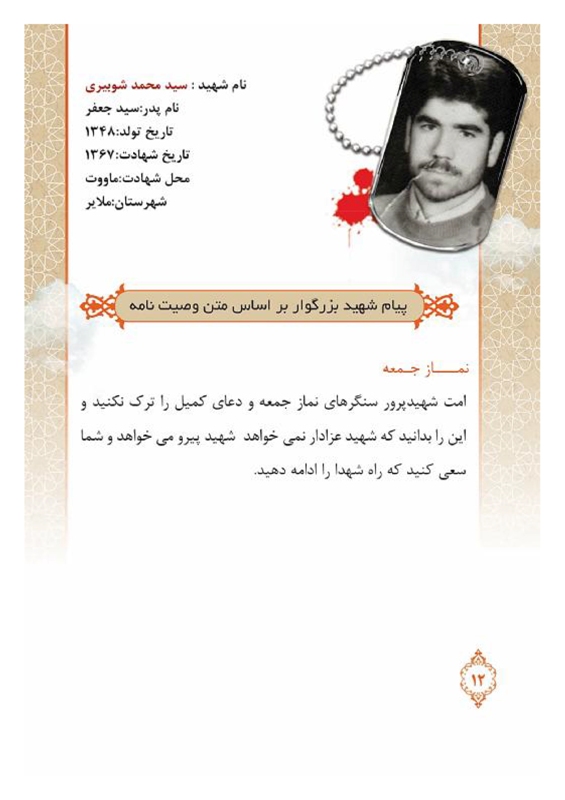 نام شهید : سید محمد شوبیری
نام پدر:سید جعفر
تاریخ تولد:۱۳۴۸
تاریخ شهادت:۱۳۶۷
محل شهادت:ماووت
شهرستان:ملایر
پیام شهید بزرگوار بر اساس متن وصیت نامه
نمـــاز جـمعه
امت شهیدپرور سنگرهای نماز جمعه و دعای کمیل را ترک نکنید و
این را بدانید که شهید عزادار نمی خواهد شهید پیرو می خواهد و شما
سعی کنید که راه شهدا را ادامه دهید.
۱۲